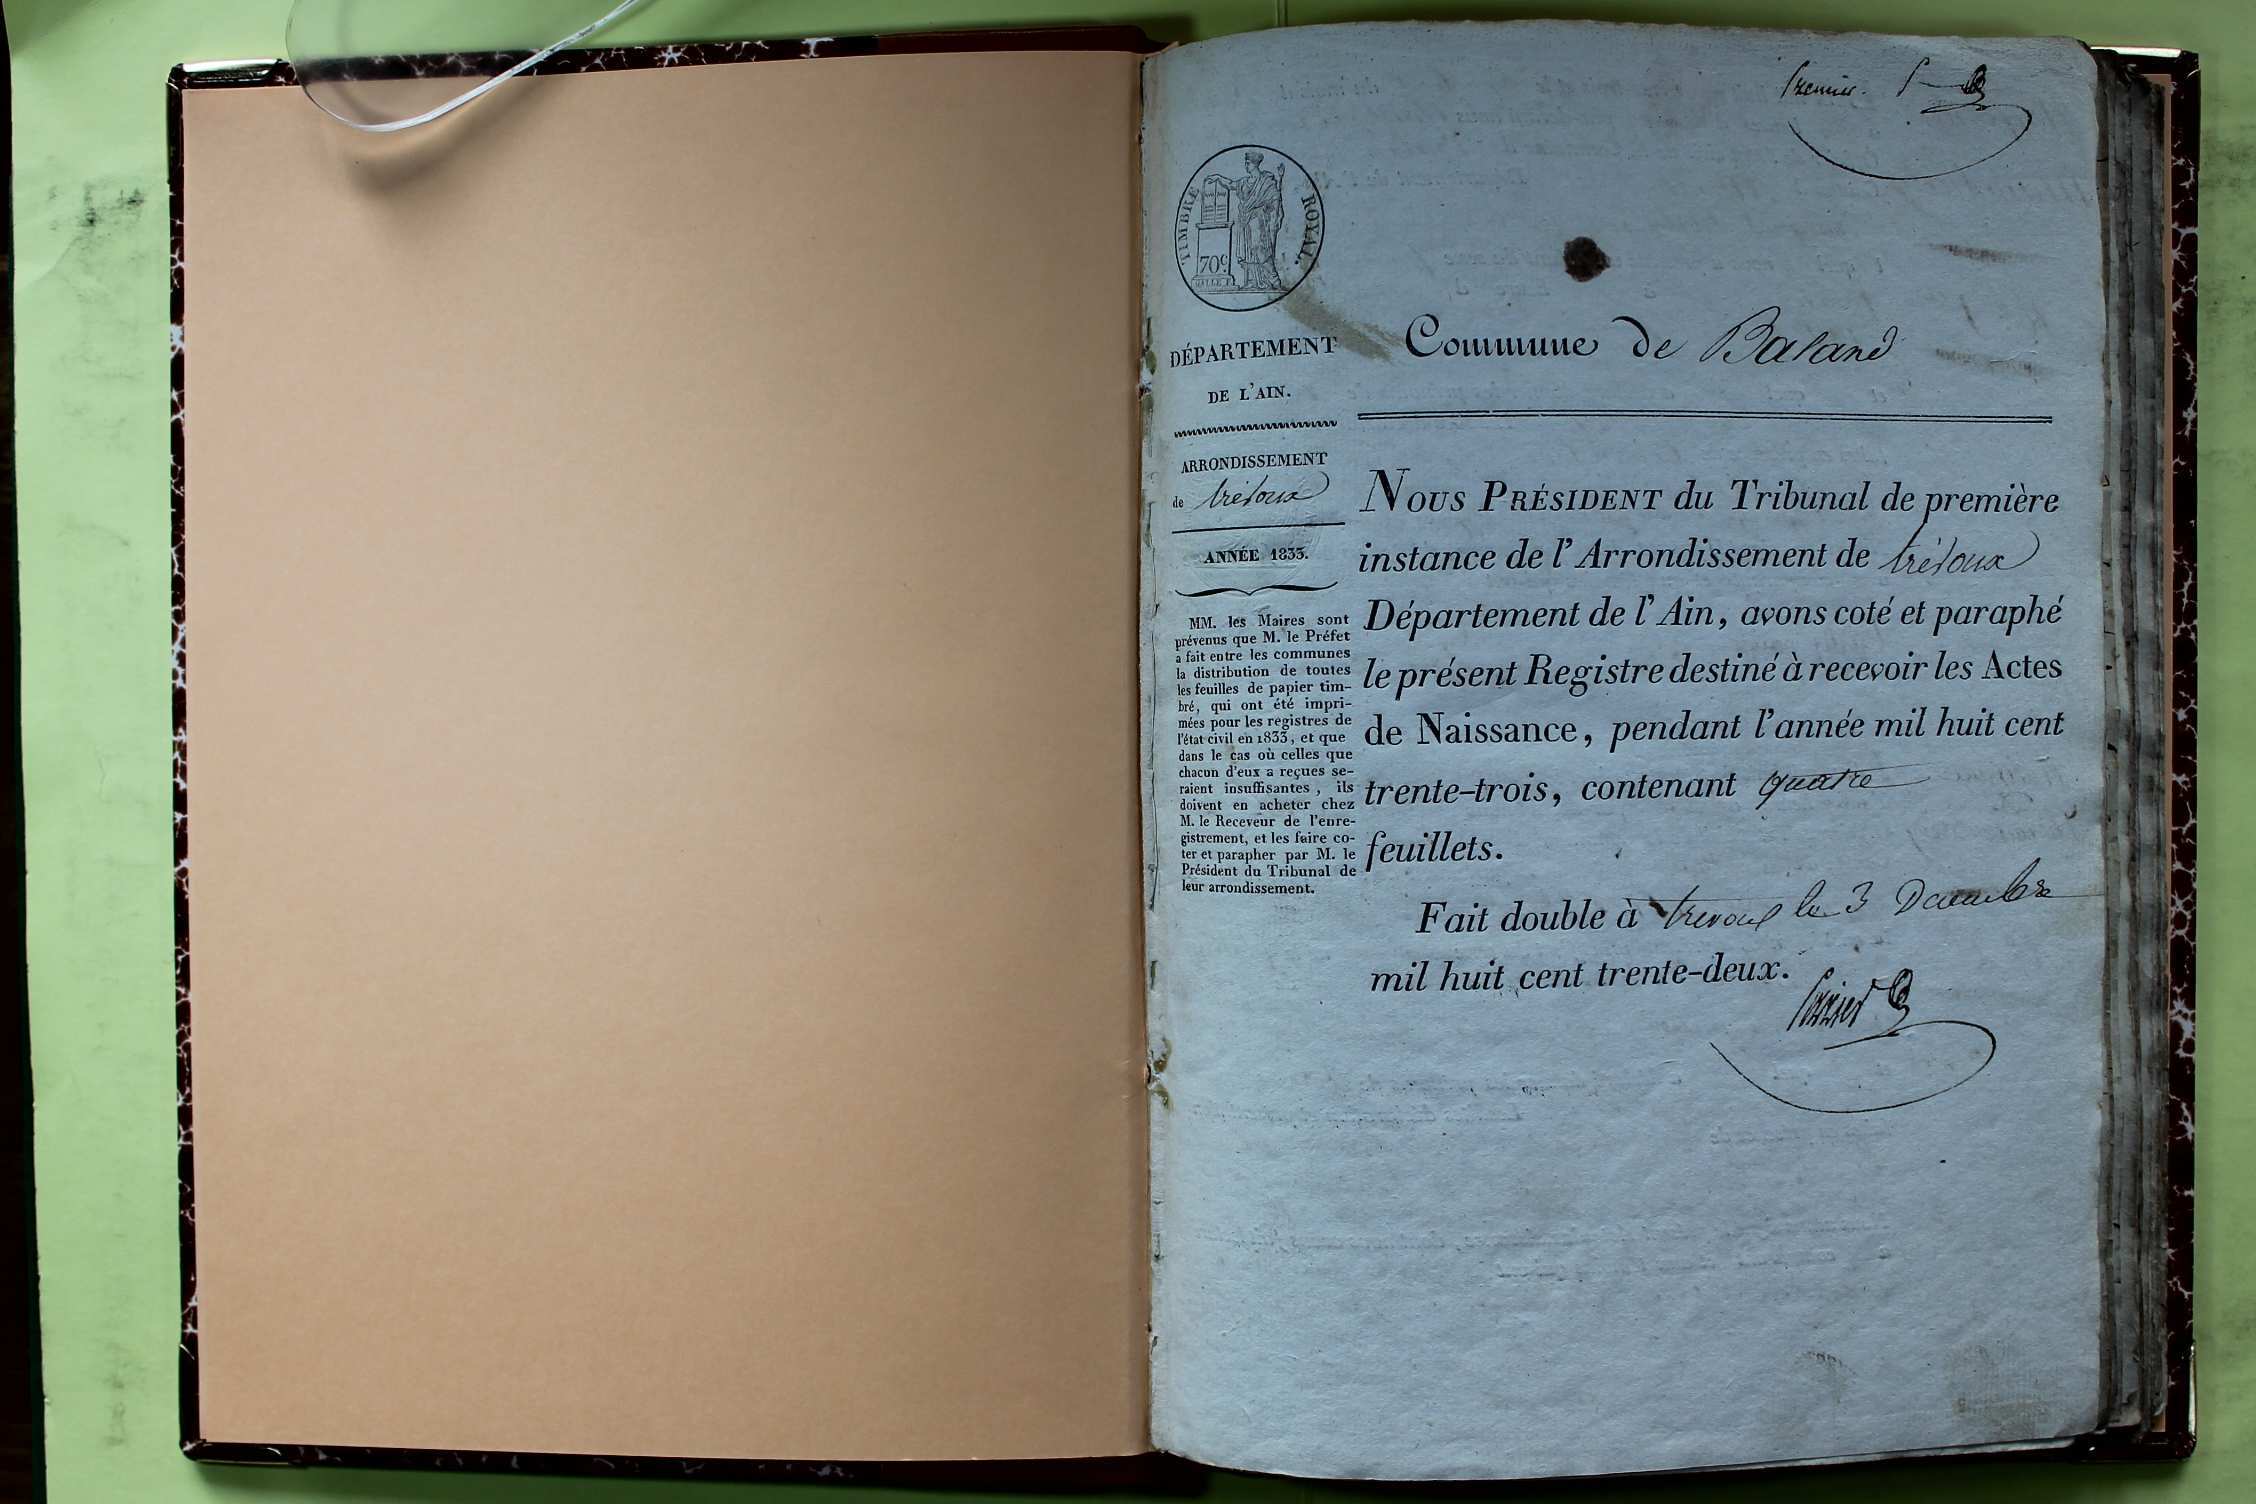 Premier.
TIMBRE ROYAL.
70c
DÉPARTEMENT
DE L'AIN.
ARRONDISSEMENT
de trévoux
ANNÉE 1833.
MM. les Maires sont
prévenus que M. le Préfet
a fait entre les communes
la distribution de toutes
les feuilles de papier tim-
bré, qui ont été impri-
mées pour les registres de
l'état civil en 1833, et que
dans le cas où celles que
chacun d'eux a reçues se-
raient insuffisantes, ils
doivent en acheter chez
M. le Receveur de l'enre-
gistrement, et les faire co-
ter et parapher par M. le
Président du Tribunal de
leur arrondissement.
Commune de Baland
NOUS PRÉSIDENT du Tribunal de première
instance de l'Arrondissement de trévoux
Département de l'Ain, avons coté et paraphé
le présent Registre destiné à recevoir les Actes
de Naissance, pendant l'année mil huit cent
trente-trois, contenant quatre
feuillets.
Fait double à trevoux le 3 Decembre
mil huit cent trente-deux.